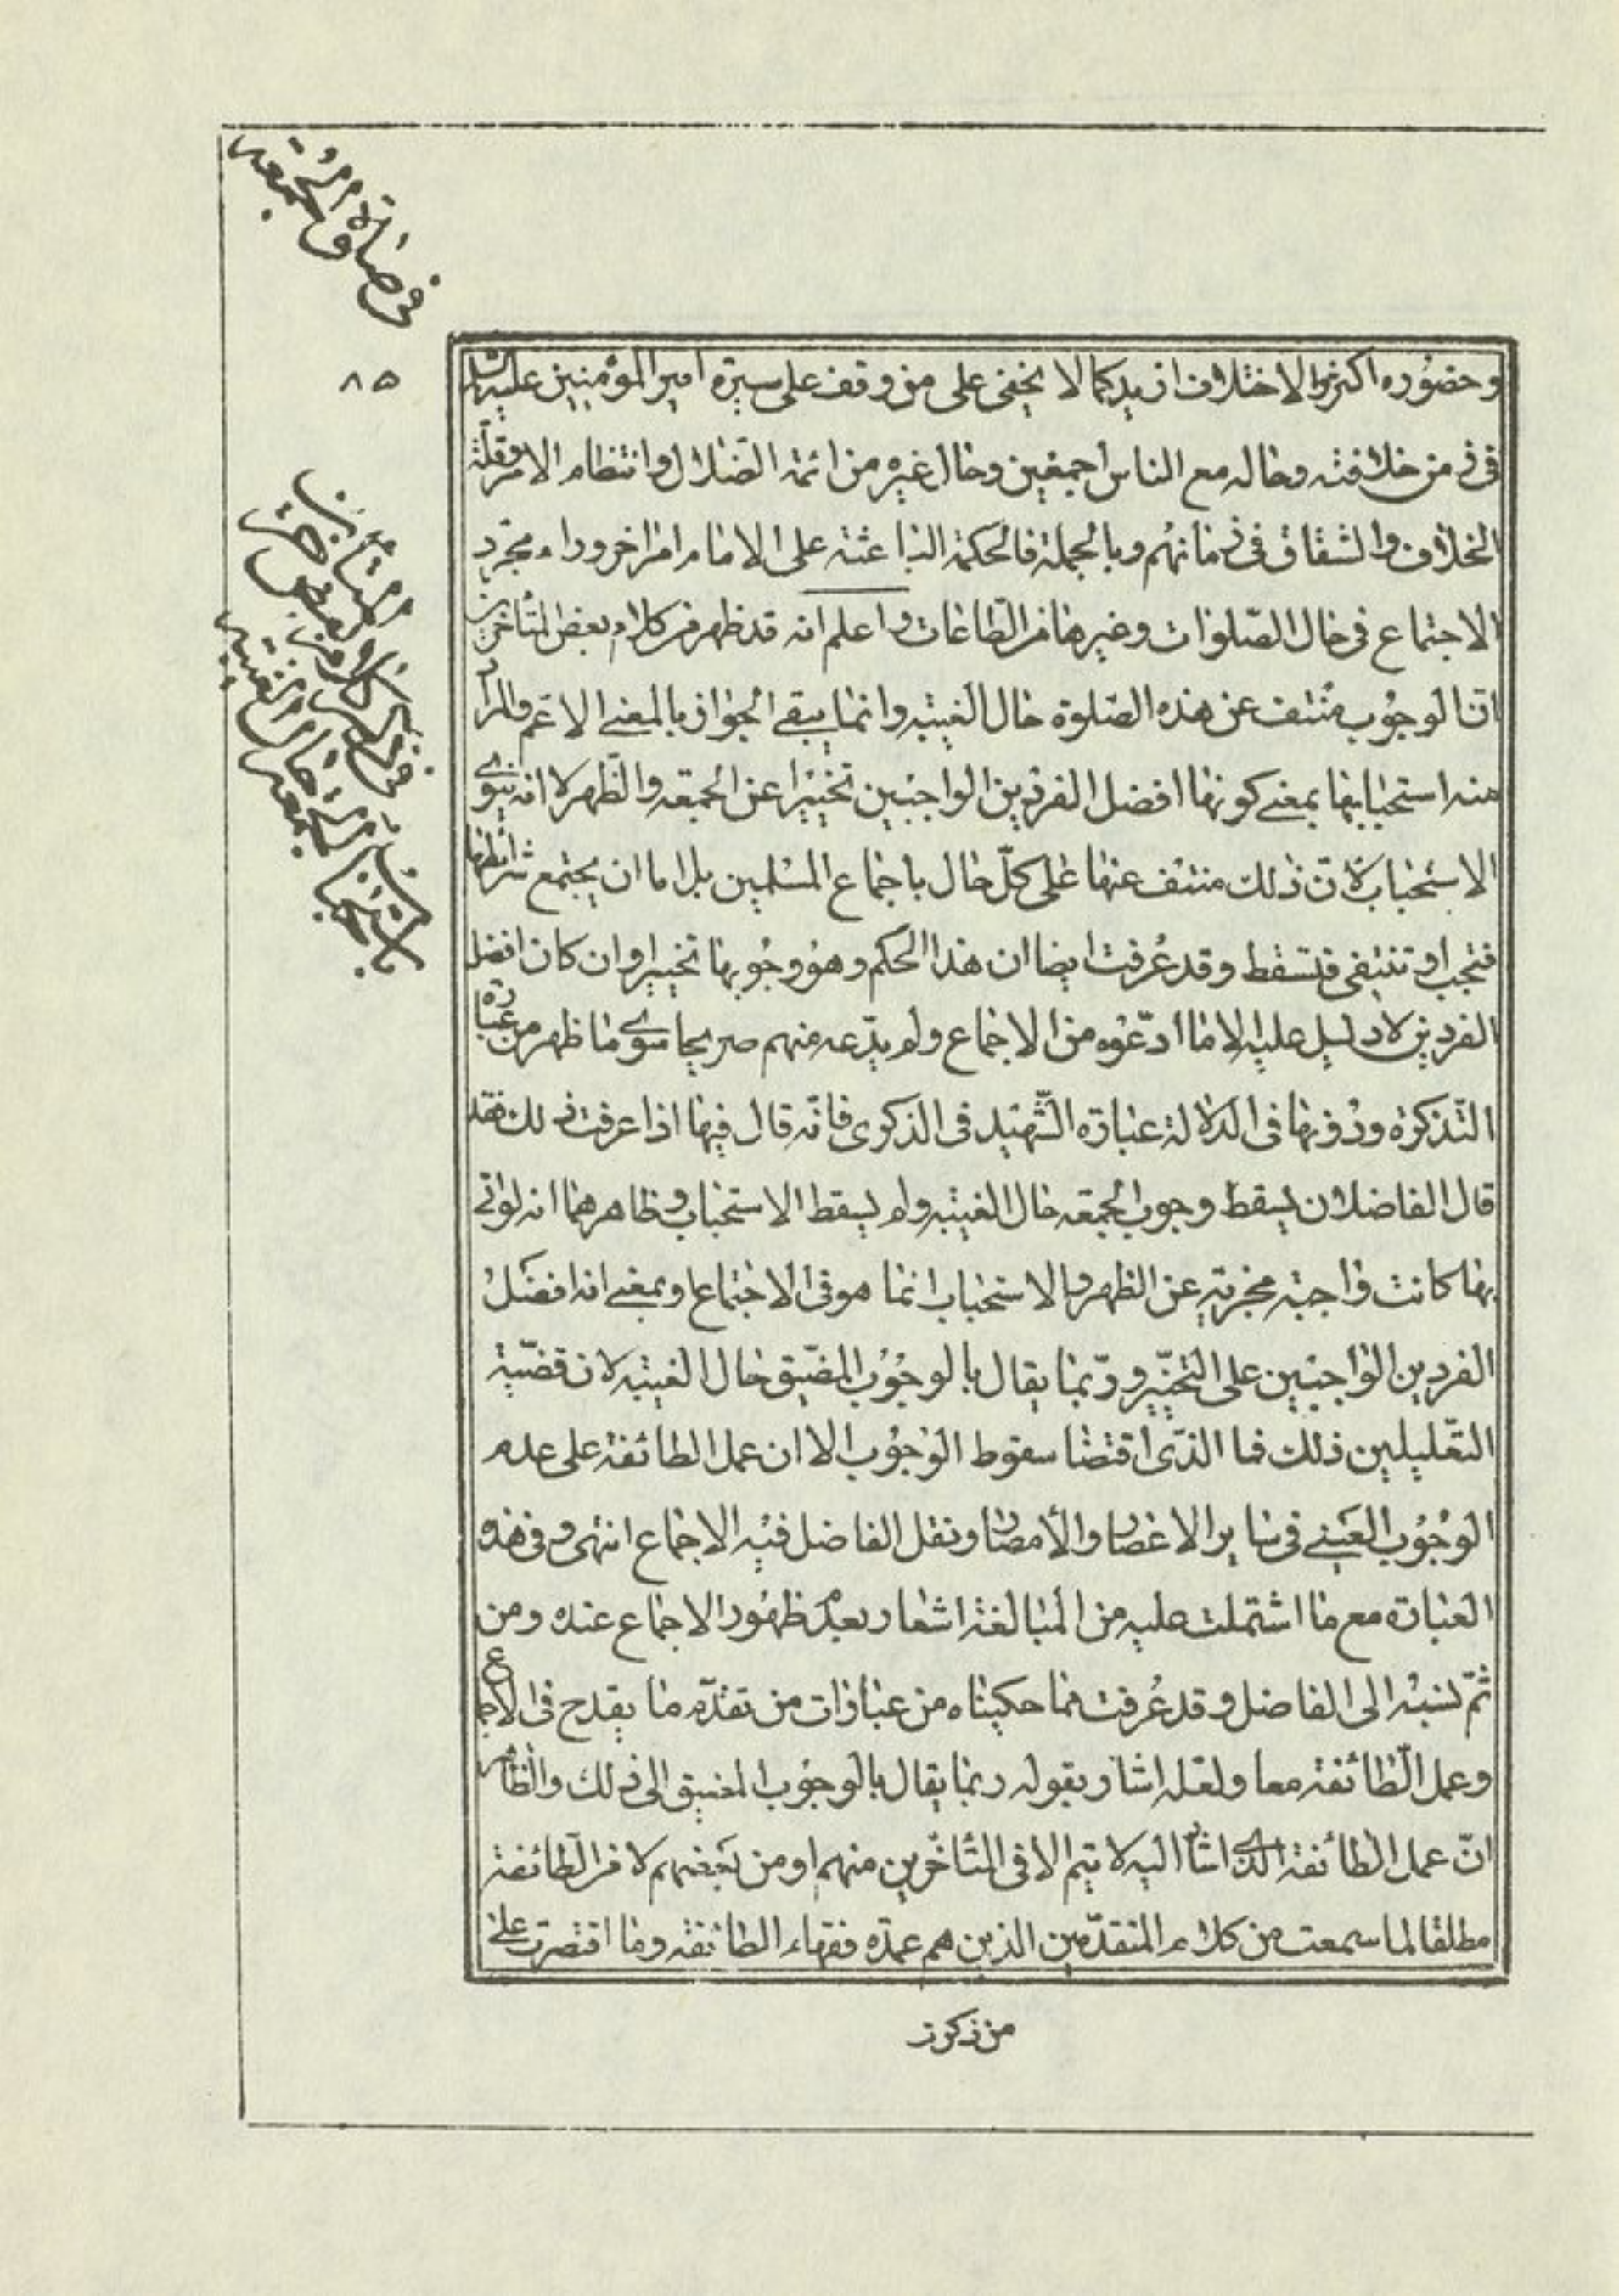 في صلاة الجمعة
٨٥
في نقل كلام بعض المتأخرين
باستحباب الجمعة حال الغيبة
وحضوره اكثر والاختلاف ازيد كما لا يخفى على من وقف على سيرة امير المؤمنين عليه السلام
فى زمن خلافته وحاله مع الناس اجمعين وحال غيره من ائمة الضلال وانتظام الامر وقلّة
الخلاف والشقاق فى زمانهم وبالجملة فالحكمة الباعثة على الامام امر اخر وراء مجرد
الاجتماع فى حال الصّلوات وغيرها من الطّاعات واعلم انه قد ظهر من كلام بعض المتأخرين
انّ الوجوب منتف عن هذه الصّلوة حال الغيبة وانما يبقى الجواز بالمعنى الاعم والمراد
منه استحبابها بمعنى كونها افضل الفردين الواجبين تخييرا عن الجمعة والظهر لا انه ينوى
الاستحباب لانّ ذلك منتف عنها على كلّ حال باجماع المسلمين بل اما ان يجتمع شرائطها
فتجب او تنتفى فتسقط وقد عُرفت ايضا ان هذا الحكم وهو وجُوبها تخييرا وان كان افضل
الفردين لا دليل عليه الا ما ادّعوه من الاجماع ولم يدّعه منهم صريحا سوى ما ظهر من عبارة
التّذكرة ودُونها فى الدلالة عبارة الشّهيد فى الذكرى فانّه قال فيها اذا عرفت ذلك فقد
قال الفاضلان يسقط وجوب الجمعة حال الغيبة ولم يسقط الاستحباب وظاهرهما انه لو اتى
بها كانت واجبة مجزية عن الظهر والاستحباب انما هو فى الاجتماع او بمعنى انه افضل
الفردين الواجبين على التخيّير وربّما يقال بالوجُوب المضيّق حال الغيبة لان قضيّة
التّعليلين ذلك فما الذّى اقتضا سقوط الوجُوب الا ان عمل الطائفة على عدم
الوجُوب العينى فى ساير الاعصار والأمصار ونقل الفاضل فيه الاجماع انتهى وفى هذه
العبارة مع ما اشتملت عليه من المبالغة اشعار بعدم ظهُور الاجماع عنده ومن
ثمّ نسبه الى الفاضل وقد عُرفت مما حكيناه من عبارات من تقدّم ما يقدح فى الاجماع
وعمل الطّائفة معا ولعله اشار بقوله ربما يقال بالوجُوب المضيق الى ذلك والظاهر
انّ عمل الطائفة الذى اشار اليه لا يتم الا فى المتأخّرين منهم او من بعضهم لا من الطائفة
مطلقا لما سمعت من كلام المتقدّمين الذين هم عمدة فقهاء الطائفة وما اقتصرت على
من ذكرت